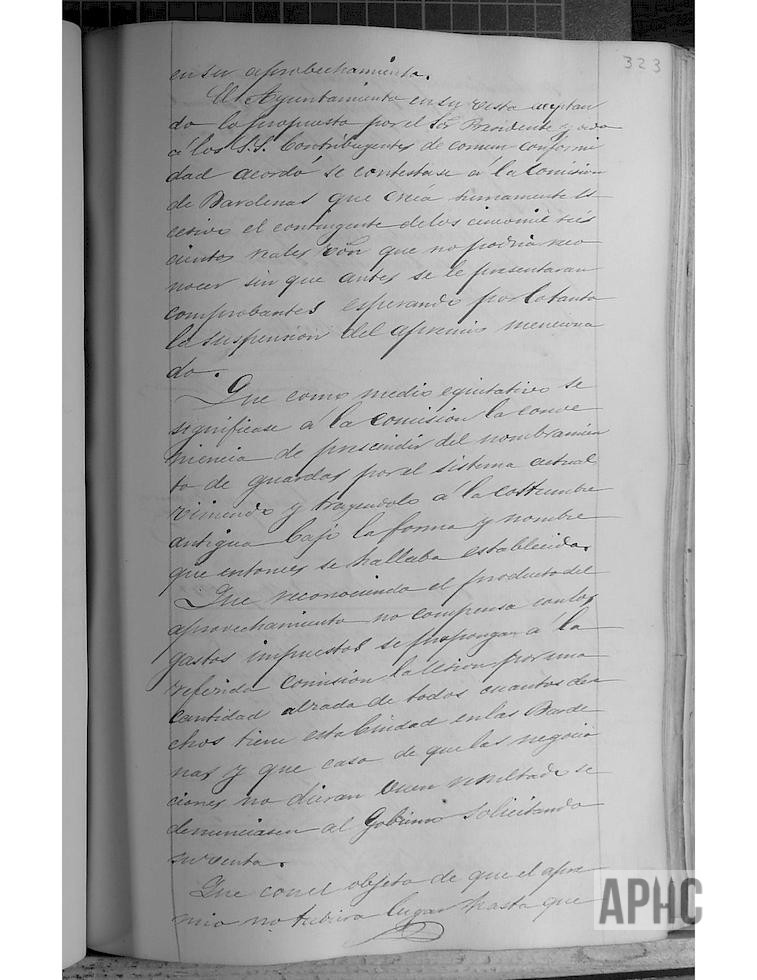 323
en su aprobechamiento.
El Ayuntamiento en su vista aceptan
do lo propuesto por el Sor Presidente y oido
á los S.S. Contribuyentes de comun conformi
dad acordó se contestase á la Comision
de Bardenas que creía sumamente es
cesivo el contingente de los cinco mil tres
cientos reales von que no podria reco
nocer sin que antes se le presentaran
comprobantes esperando por lo tanto
la suspension del apremio menciona
do.
Que como medio equitativo se
significase á la comision la conve
niencia de prescindir del nombramien
to de guardas por el sistema actual
y trayendolo á la costumbre
antigua bajo la forma y nombre
que entonces se hallaba establecida.
Que reconociendo el producto del
aprovechamiento no compensa con los
gastos impuestos se proponga á la
referida comision la cesion por una
cantidad alzada de todos cuantos dere
chos tiene esta Ciudad en las Barde
nas y que caso de que las negocia
ciones no dieran buen resultado se
denunciasen al Gobierno solicitando
su venta.
Que con el objeto de que el apre
mio no tubiera lugar hasta que
APHC